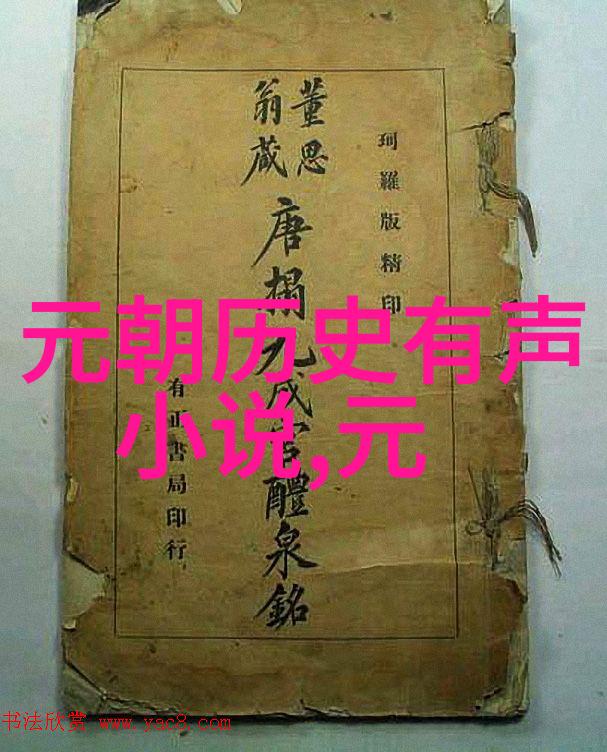 珂羅版精印
董思
翁藏
唐搨九成宮醴泉銘
有正書局印行
元朝历史有声
小说,元
书法欣赏 www.yac8.com